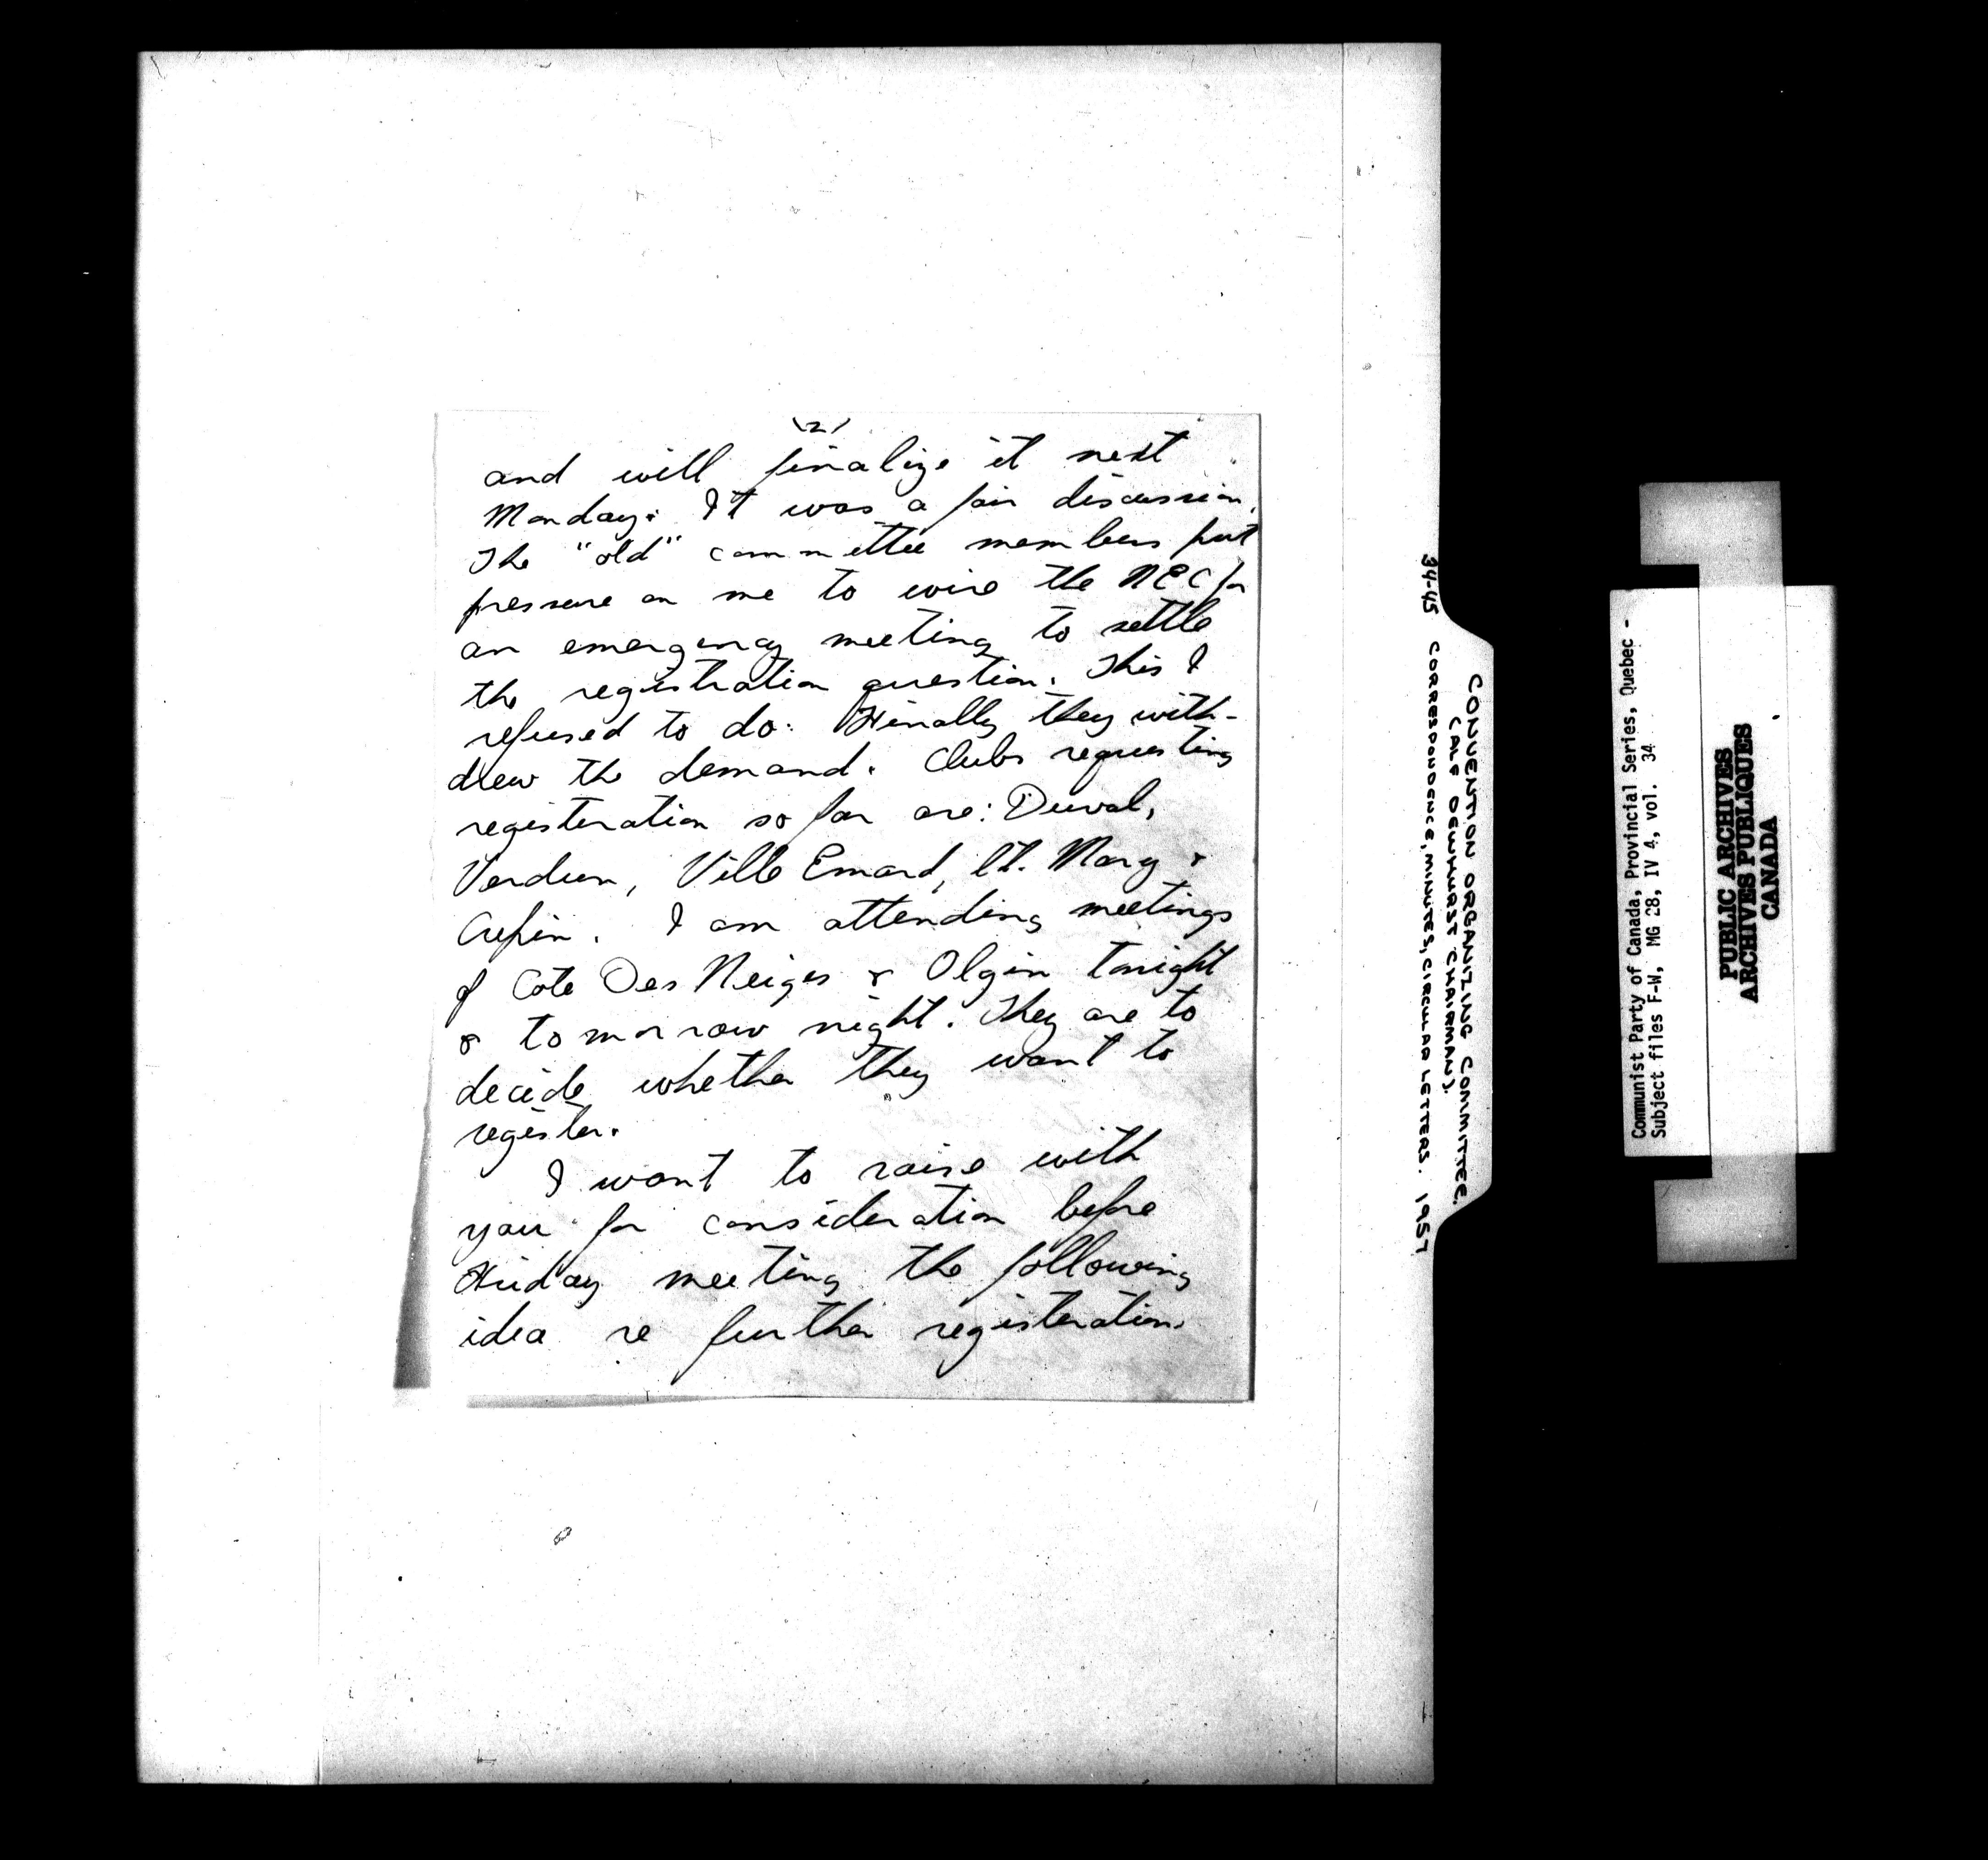 (2)
and will finalize it next
Monday. It was a fair discussion.
The "old" committee members put
pressure on me to wire the NEC for
an emergency meeting to settle
the registration question. This I
refused to do. Finally they with-
drew the demand. Clubs requesting
registeration so far are: Duval,
Verdun, Ville Emard, St. Mary &
I am attending meetings
of Cote Des Neiges & Olgin tonight
& tomorrow night. They are to
decide whether they want to
register.
I want to raise with
you for consideration before
Friday meeting the following
idea re further registeration.
34-45 CONVENTION ORGANIZING COMMITTEE.
(ALF DEWHURST CHAIRMAN).
CORRESPONDENCE, MINUTES, CIRCULAR LETTERS. 1957
Communist Party of Canada, Provincial Series, Quebec -
Subject files F-W, MG 28, IV 4, vol. 34
PUBLIC ARCHIVES
ARCHIVES PUBLIQUES
CANADA